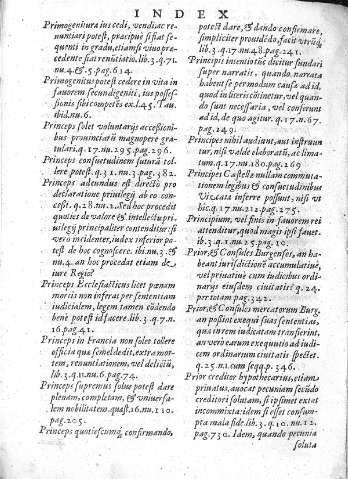 INDEX
Primogenitura in cedi, vendi, ac re-
nuntiari potest, præcipuè si fiat se-
quenti in gradu, etiamsi vivo præ-
cedente fiat renũtiatio, lib.3.q.71.
nu.4.&.5.pag.614.
Primogenitus potest cedere in vita in
favorem secundigeniti, ius posses-
sionis sibi competẽs ex.l.45. Tau.
ibid.nu.6.
Princeps solet voluntarijs accessioni-
bus provinciarũ magnopere gra-
tulari, q.17.nu.295.pag.296.
Princeps consuetudinem futurã tol-
lere potest. q.31.nu.3.pag.382.
Princeps adeundus est directò pro
declaratione privilegij ab eo con-
cessi. q.28.nu.2. Sed hoc procedit
quoties de valore & intellectu pri-
vilegij principaliter contenditur: si
vero incidenter, iudex inferior po-
test de hoc cognoscere. ibi.nu.3.&
nu.4. an hoc procedat etiam de
iure Regio?
Princeps Ecclesiasticus licet panam
mortis non inferat per sententiam
iudicialem, legem tamen cõdendo
bene potest id facere. lib.3.q.7.n.
16.pag.41.
Princeps in Francia non solet tollere
officia quæ semel dedit, extra mor-
tem, renuntiationem, vel delictũ,
lib.3.q.11.nu.6.pag.74.
Princeps supremus solus potest dare
plenam, completam, & universa-
lem nobilitatem. quæst.16.nu.110.
pag.205.
Princeps quotiescumq; confirmando,
potest dare, & dando confirmare,
simpliciter providẽdo, facit utrũq;
lib.3.q.17.nu.48.pag.241.
Principis intentio tũc dicitur fundari
super narratis, quando, narrata
habent se per modum causæ ad id,
quod in literis cõtinetur, vel quan-
do sunt necessaria, vel conferunt
ad id, de quo agitur. q.17.n.67.
pag.249.
Principes nihil audiunt, aut instruun-
tur, nisi valde elaboratũ, ac lima-
tum. q.17.nu.180.pag.269
Principes Castellæ nullam commuta-
tionem legibus & consuetudinibus
Vizcaiæ inferre possunt, nisi vt
hic, q.17.nu.212.pag.275.
Principium, vel finis in favorem rei
attenditur, quod magis ipsi favet.
lib.3.q.1.nu.25.pag.10.
Prior, & Consules Burgenses, an ha-
beant iurisdictionẽ accumulativẽ,
vel privativẽ cum iudicibus ordi-
narijs eiusdem civitatis? q.24.
per totam pag.342.
Prior, & Consules mercatorum Burg.
an possint exequi suas sententias,
quæ in rem iudicatam transierint,
an vero earum exequutio ad iudi-
cem ordinarium civitatis spectet.
q.25.n.1.cum seqq.p.346.
Prior creditor hypothecarius, etiam
privatus, avocat pecuniam secũdo
creditori solutam, si ipsimet extat
incommixta: idem si esset consump-
ta mala fide. lib.3.q.10.nu.12.
pag.730. Idem, quando pecunia
soluta